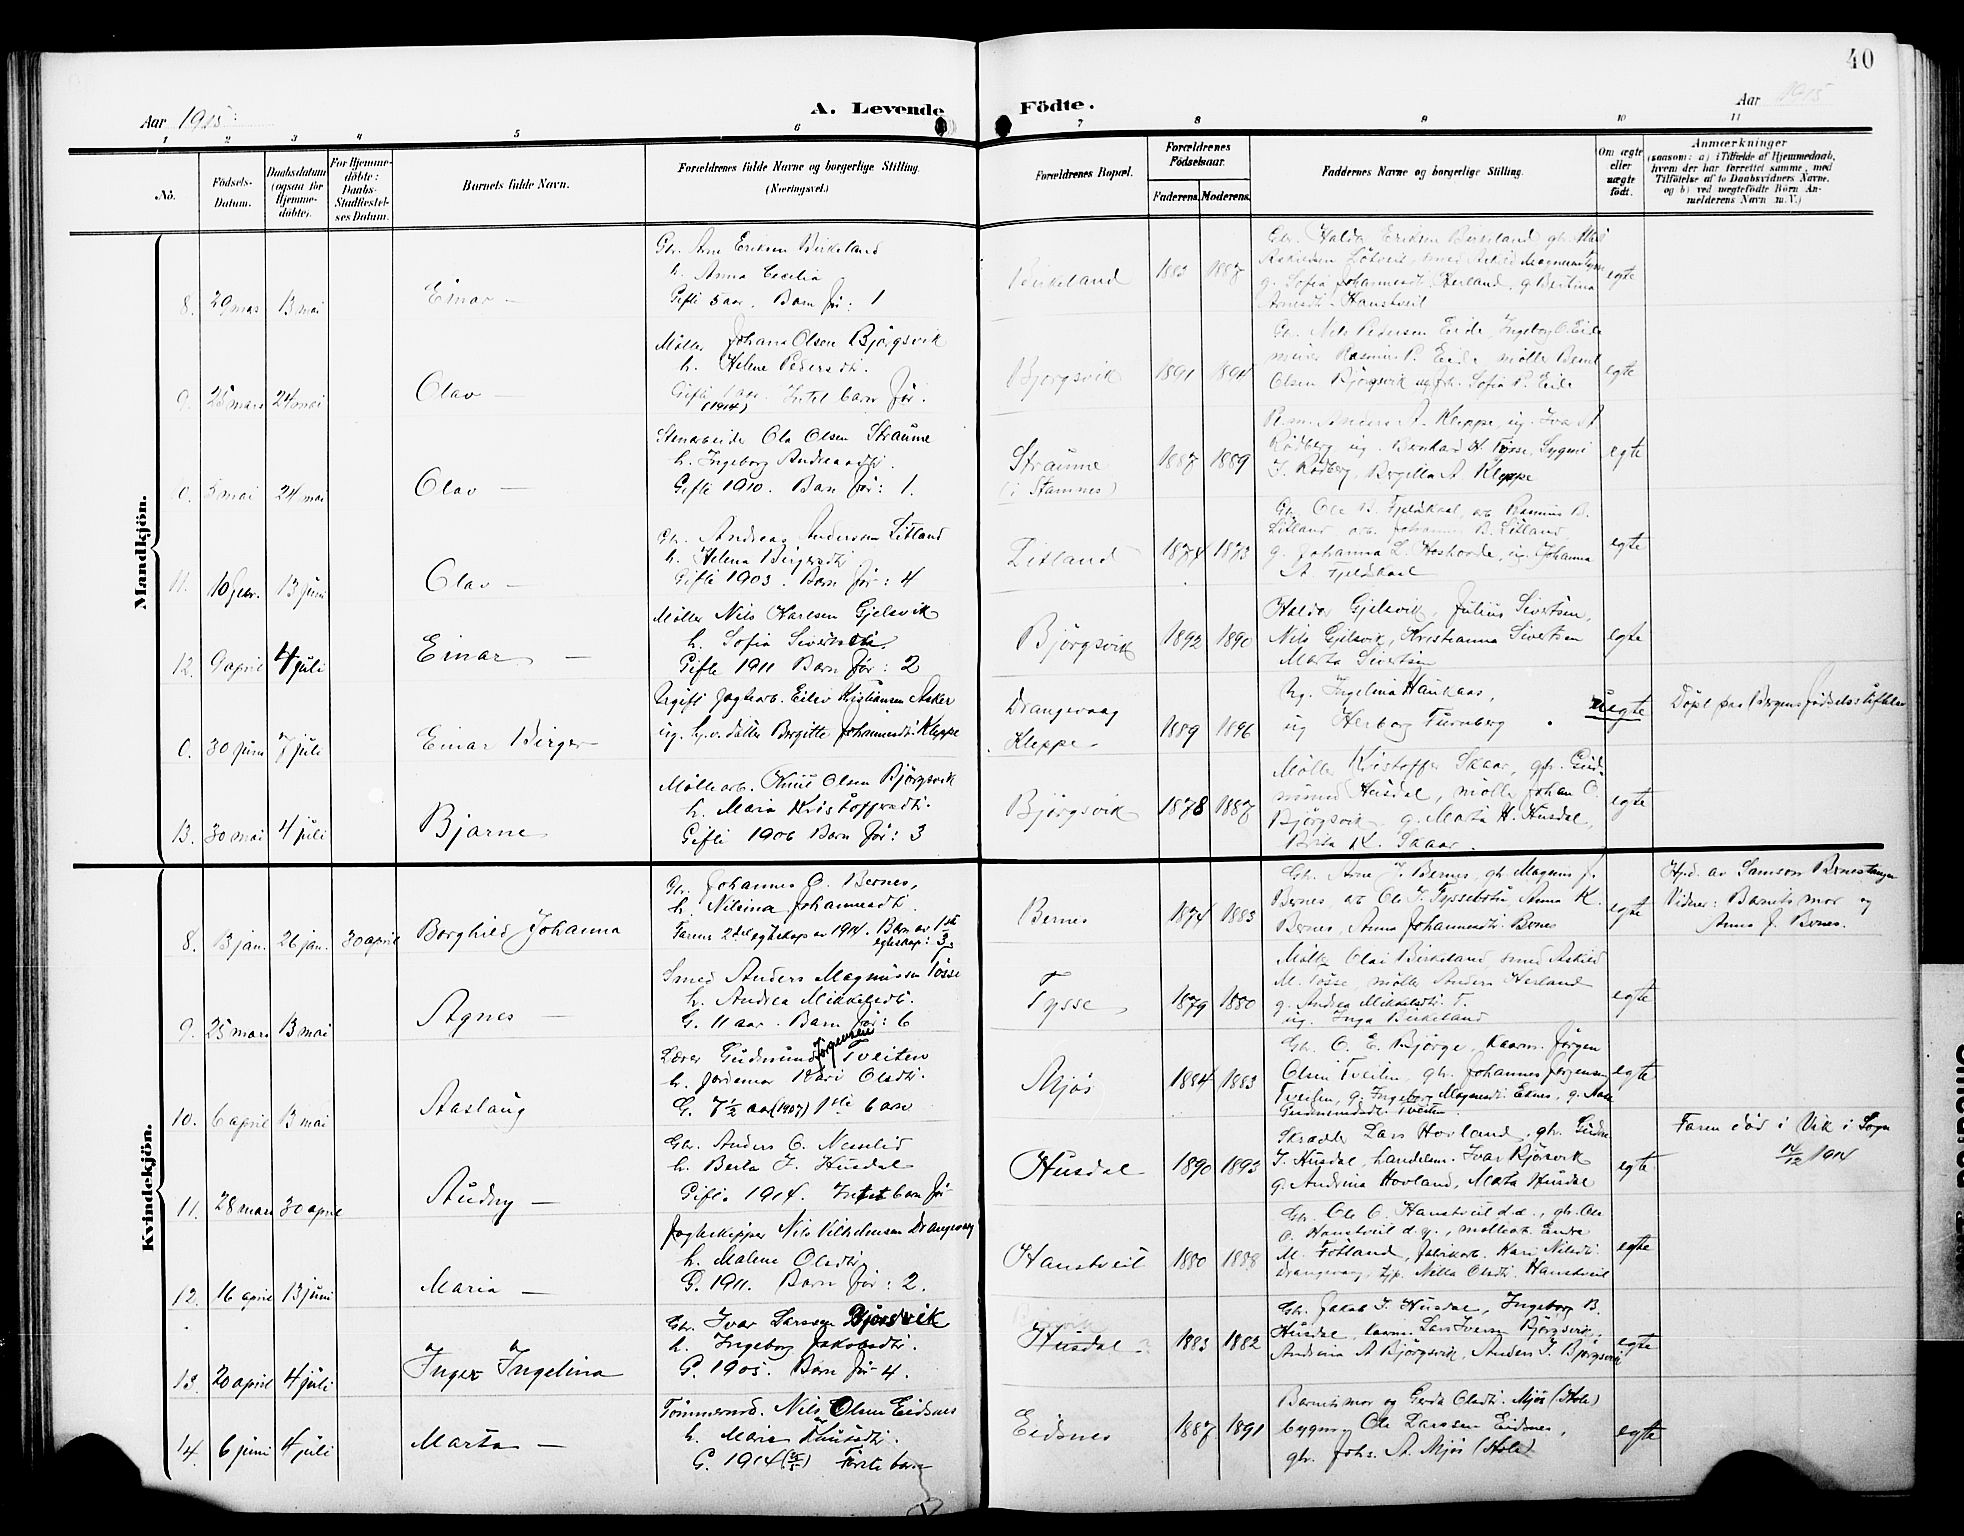 40
Aar 1915
A. Levende Födte.
Aar 1915
1 2 3 4 5 6 7 8 9 10 11
No.
Födsels-Datum.
Daabsdatum (ogsaa for Hjemme-döbte).
For Hjemme-döbte: Daabs-Stadfæstel-ses Datum.
Barnets fulde Navn.
Forældrenes fulde Navne og borgerlige Stilling.
(Næringsvei.)
Forældrenes Bopæl.
Forældrenes Födselsaar.
Faderens. Moderens.
Faddernes Navne og borgerlige Stilling.
Om ægte eller uægte födt.
Anmærkninger
(saasom: a) i Tilfælde af Hjemmedaab, hvem der har forrettet samme, med Tilföielse af to Daabsvidners Navne, og b) ved uægtefödte Börn Anmelderens Navn m. V.)
Mandkjön.
8. 29 mars 13 mai Einar —
Gbr. Arne Eriksen Birkeland
h. Anna Cecilia
Gifti 5 aar. Barn før: 1
Birkeland 1883 1887
g. Sofia Johannesdt. Herland, g. Bertina
Arnesdt. Hanstveit
egte
9. 25 mars 24 mai Olav —
Møller Johan Olsen Bjørgsvik
h. Helene Pedersdt.
Gifti 1 aar. Intet barn før.
(1914)
Bjorgsvik 1891 1894
Gbr. Nils Pedersen Eide, Ingeborg O. Eide
meier Rasmus P. Eide, mølle Bernt
Olsen Bjørgsvik ug. Sofia P. Eide
egte
10. 5 mai 24 mai Olav —
Stenarbeide Ola Olsen Straume
h. Ingeborg Andreasdt.
Gifti 1910. Barn før: 1.
Straume
(i Stamnes)
1887 1889
Anders A. Kleppe, ug. Ivar A
Rødberg ug. Bernhard H. Tøsse, Sygni
I. Rødberg, Bergitta A Kleppe
egte
11. 10 febr. 13 juni Olav —
Gbr. Andreas Andersen Litland
h. Helena Birgersdt.
Gifti 1903. Barn før: 4
Litland 1874 1873
Gbr. Ole B. Fjeldskaal, arb. Rasmus B.
Litland arb. Johannes B. Litland
g. Johanna L. Hoshovde, ug. Johanna
A. Fjeldskaal
egte
12. 9 april 4 juli Einar —
Møller Nils Karlsen Gjelsvik
h. Sofia Sivertsdt.
Gifte 1911 Barn før: 2
Bjørgsvik 1892 1890
Haldor Gjelsvik, Julius Sivertsen,
Nils Gjelsvik, Kristianna Sivertsen
Marta Sivertsen
egte
0. 30 juni 7 juli Einar Birger
Ugift fogterarb. Eilev Kristiansen Asker
ug. Gv. datter Bergitte Johannesdt. Kleppe
Drangevaag
Kleppe
1889 1896
Ug. Ingelina Haukaas,
ug Herborg Turnberg
uegte
Døpt paa Bergens fødselsstiftelse
13. 30 mai 4 juli Bjarne
Møllearb. Knut Olsen Bjørgsvik
h. Maria Kristoffersdt.
Gifti 1906 Barn før: 3
Bjørgsvik 1878 1887
Møller Kristoffer Skaar, gbr. Gud-
mund Husdal, mølle Johan O.
Bjørgsvik g. Marta H. Husdal,
Brita K. Skaar.
egte
Kvindekjön.
8. 13 jan. 26 jan. 30 april Borghild Johanna
Gbr. Johannes O. Bernes,
h. Nilsina Johannesdt.
Farens 2det egteskap av 1914. Barn av 1ste
egteskap: 3.
Bernes 1874 1883
Gbr. Arne J. Bernes, gbr Magnus J.
Bernes, arb Ole T. Tyssebotn Anna K.
Bernes, Anna Johannesdt. Bernes
egte
Hjd. av Samson Bernestangen
Vidner: Barnets mor og
Anna J. Bernes.
9. 25 mars 13 mai Agnes —
Smed Anders Magnussen Tøsse
h. Andrea Mikkelsdt.
G. 11 aar. Barn før: 6
Tysse 1879 1880
Mølle Olai Birkeland, smed Askild
M. Tøsse, møller Anders Herland
g. Andrea Mikkelsdt. T.
ug. Inga Birkeland
egte
10. 6 april 13 mai Aaslaug
Jørgensen
Lærer Gudmund Tveiten
h. Jordemor Kari Olsdt.
G. 7½ aar (1907) 1ste barn
Mjøs 1884 1883
Gbr. O. E. Bjørge, Kaarm. Jørgen
Olsen Tveiten, gbr. Johannes Jørgensen
Tveiten, g. Ingeborg Magnesdt. Eknes, g. Aase
Gudmundsdt. Tveiten.
egte
11. 28 mars 30 april Audny —
Gbr. Anders O. Nesselid
h. Berta I. Husdal
Gifti. 1914. Intet barn før
Husdal 1890 1893
Skrædder Lars Hovland, gbr. Gudm
I. Husdal, handelsm. Ivar Bjøsvik
g. Andrina Hovland, Marta Husdal
egte.
Faren død i Vik i Sogn
14/12 1914
12. 16 april 13 juni Maria —
Jagteskipper Nils Vilhelmsen Drangevaag
h. Malene Olsdt.
G. 1911. Barn før: 2.
Hanstveit 1880 1888
Gbr. Ole O. Hanstveit d.e., gbr. Ole
O. Hanstveit d.y., møllearb. Endre
M. Fotland, fabrikarb. Kari Nilsdt.
Drangevaag, tjp. Nilla Olsdt. Hanstveit
egte
13. 20 april 4 juli Inger Ingelina
Gbr. Ivar Larssen Bjørsvik
h. Ingeborg Jakobsdt.
G. 1905. Barn før 4.
Bjørsvik
Husdal 1883 1882
Gbr. Jakob I. Husdal, Ingeborg B.
Husdal, kaarm. Lars Iversen Bjørgsvik,
Andrina A Bjørgsvik, Anders I. Bjørgsvik
egte
14. 6 juni 4 juli Marta —
Tømmermd. Nils Olsen Eidsnes
h. Marie Knutsdt.
G. 1914 Første barn
Eidsnes 1887 1891
Barnets mor og Gerda Olsdt. Mjøs (Hole)
bygm. Ole Larssen Eidsnes,
gbr. Johs. A. Mjøs (Hole)
egte